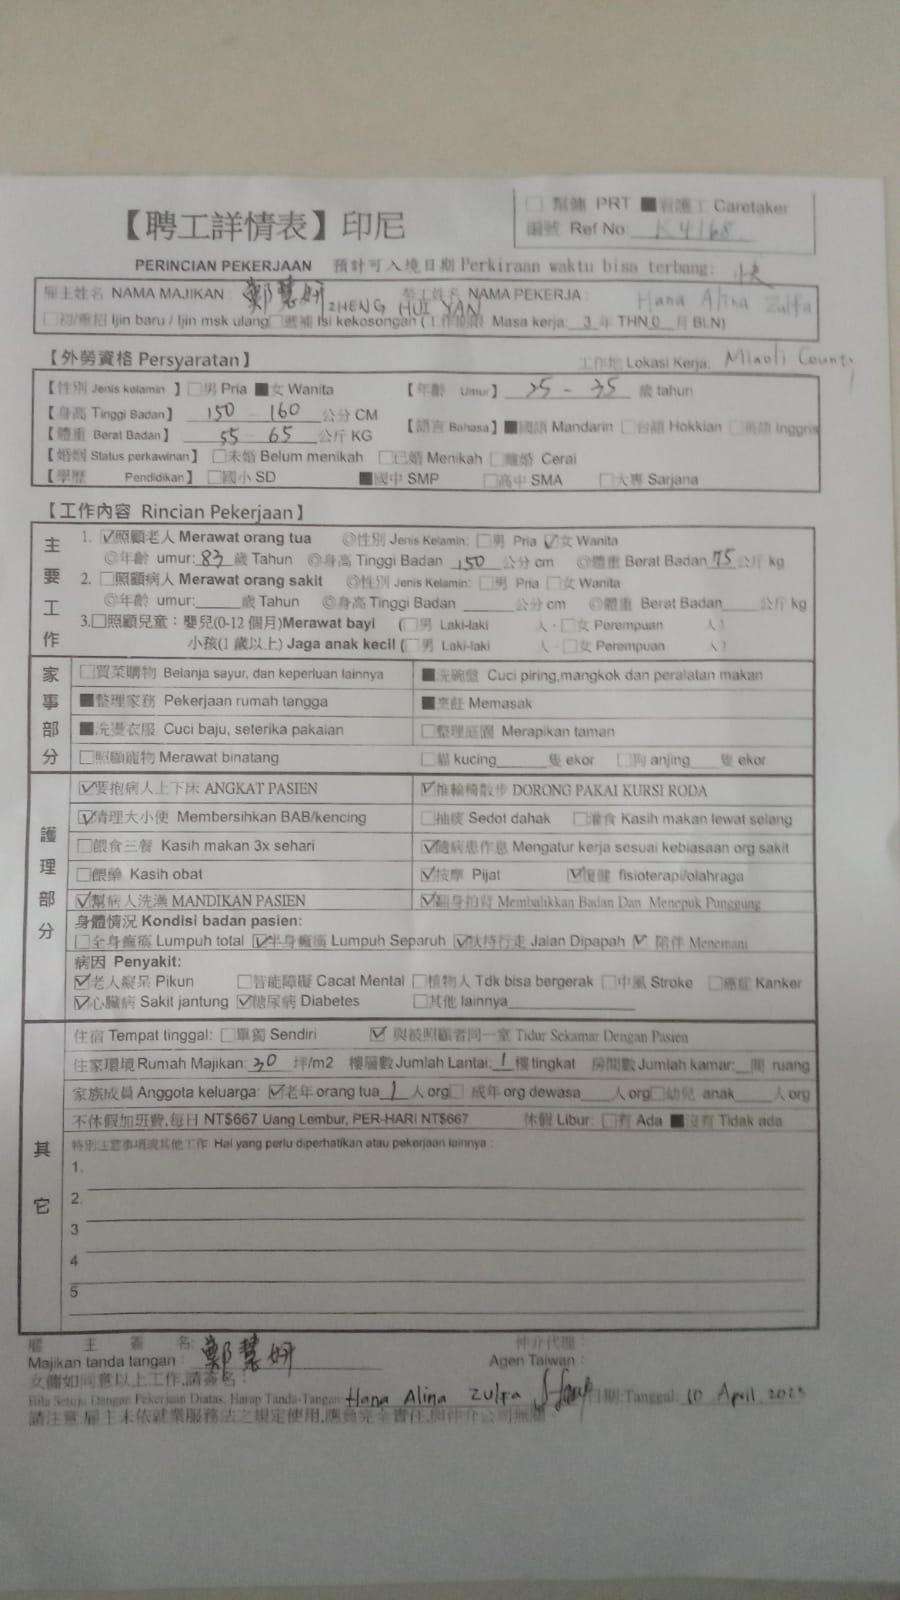 【聘工詳情表】印尼
□ 幫傭 PRT ■看護工 Caretaker
編號 Ref No: K4168
PERINCIAN PEKERJAAN 預計可入境日期 Perkiraan waktu bisa terbang: 快
雇主姓名 NAMA MAJIKAN : 鄭慧妍 ZHENG HUI YAN 勞工姓名 NAMA PEKERJA : Hana Alina Zulfa
□初/重招 Ijin baru / Ijin msk ulang □遞補 Isi kekosongan ( Masa kerja: 3 年 THN 0 月 BLN)
【外勞資格 Persyaratan】 工作地 Lokasi Kerja: Miaoli County
【性別 Jenis kelamin 】□男 Pria ■女 Wanita 【年齡 Umur】 25 - 35 歲 tahun
【身高 Tinggi Badan】 150 - 160 公分 CM
【體重 Berat Badan】 55 - 65 公斤 KG 【語言 Bahasa】■國語 Mandarin □台語 Hokkian □英語 Inggris
【婚姻 Status perkawinan】 □未婚 Belum menikah □已婚 Menikah □離婚 Cerai
【學歷 Pendidikan】 □國小 SD ■國中 SMP □高中 SMA □大專 Sarjana
【工作內容 Rincian Pekerjaan】
主要工作
1. ☑照顧老人 Merawat orang tua ◎性別 Jenis Kelamin: □男 Pria ☑女 Wanita
◎年齡 umur: 83 歲 Tahun ◎身高 Tinggi Badan 150 公分 cm ◎體重 Berat Badan 75 公斤 kg
2. □照顧病人 Merawat orang sakit ◎性別 Jenis Kelamin: □男 Pria □女 Wanita
◎年齡 umur:______歲 Tahun ◎身高 Tinggi Badan ______公分 cm ◎體重 Berat Badan_____公斤 kg
3.□照顧兒童：嬰兒(0-12 個月)Merawat bayi (□男 Laki-laki 人、□女 Perempuan 人)
小孩(1 歲以上) Jaga anak kecil (□男 Laki-laki 人、□女 Perempuan 人)
家事部分
□買菜購物 Belanja sayur, dan keperluan lainnya ■洗碗盤 Cuci piring,mangkok dan peralatan makan
■整理家務 Pekerjaan rumah tangga ■烹飪 Memasak
■洗燙衣服 Cuci baju, seterika pakaian □整理庭園 Merapikan taman
□照顧寵物 Merawat binatang □貓 kucing______隻 ekor □狗 anjing____隻 ekor
護理部分
☑要抱病人上下床 ANGKAT PASIEN ☑推輪椅散步 DORONG PAKAI KURSI RODA
☑清理大小便 Membersihkan BAB/kencing □抽痰 Sedot dahak □灌食 Kasih makan lewat selang
□餵食三餐 Kasih makan 3x sehari ☑隨病患作息 Mengatur kerja sesuai kebiasaan org sakit
□餵藥 Kasih obat ☑按摩 Pijat ☑復健 fisioterapi/olahraga
☑幫病人洗澡 MANDIKAN PASIEN ☑翻身拍背 Membalikkan Badan Dan Menepuk Punggung
身體情況 Kondisi badan pasien:
□全身癱瘓 Lumpuh total ☑半身癱瘓 Lumpuh Separuh ☑扶持行走 Jalan Dipapah ☑ 陪伴 Menemani
病因 Penyakit:
☑老人癡呆 Pikun □智能障礙 Cacat Mental □植物人 Tdk bisa bergerak □中風 Stroke □癌症 Kanker
☑心臟病 Sakit jantung ☑糖尿病 Diabetes □其他 lainnya____________
其它
住宿 Tempat tinggal: □單獨 Sendiri ☑ 與被照顧者同一室 Tidur Sekamar Dengan Pasien
住家環境 Rumah Majikan: 30 坪/m2 樓層數 Jumlah Lantai: 1 樓 tingkat 房間數 Jumlah kamar:__間 ruang
家族成員 Anggota keluarga: ☑老年 orang tua 1 人 org□ 成年 org dewasa____人 org□幼兒 anak_____人 org
不休假加班費,每日 NT$667 Uang Lembur, PER-HARI NT$667 休假 Libur: □有 Ada ■沒有 Tidak ada
特別注意事項或其他工作 Hal yang perlu diperhatikan atau pekerjaan lainnya :
1.
2.
3
4
5
雇主簽名 仲介代理 :
Majikan tanda tangan : 鄭慧妍 Agen Taiwan :
女傭如同意以上工作,請簽名 :
Bila Setuju Dengan Pekerjaan Diatas, Harap Tanda-Tangan Hana Alina Zulfa 日期:Tanggal: 10 April 2023
請注意:雇主未依就業服務法之規定使用,應負完全責任,與仲介公司無關